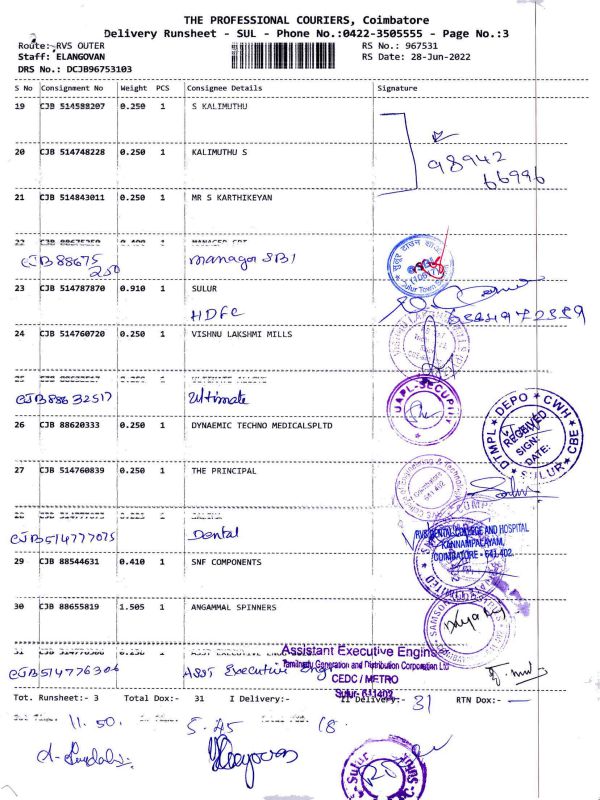 THE PROFESSIONAL COURIERS, Coimbatore
Delivery Runsheet - SUL - Phone No.:0422-3505555 - Page No.:3
Route: RVS OUTER RS No.: 967531
Staff: ELANGOVAN RS Date: 28-Jun-2022
DRS No.: DCJB96753103
S No Consignment No Weight PCS Consignee Details Signature
19 CJB 514588207 0.250 1 S KALIMUTHU
20 CJB 514748228 0.250 1 KALIMUTHU S
98942
66996
21 CJB 514843011 0.250 1 MR S KARTHIKEYAN
CJB 88675
250 Manager SBI
23 CJB 514787870 0.910 1 SULUR
HDFC
24 CJB 514760720 0.250 1 VISHNU LAKSHMI MILLS
CJB 88632517 Ultimate
UAPL-SECURITY
26 CJB 88620333 0.250 1 DYNAEMIC TECHNO MEDICALSPLTD
DTMPL DEPO CWH SULUR CBE
RECEIVED
SIGN:
DATE:
27 CJB 514760839 0.250 1 THE PRINCIPAL
CJB514777075 Dental
RVS DENTAL COLLEGE AND HOSPITAL
KANNAMPALAYAM,
COIMBATORE - 641 402.
29 CJB 88544631 0.410 1 SNF COMPONENTS
30 CJB 88655819 1.505 1 ANGAMMAL SPINNERS
Assistant Executive Engineer
CJB514776306 Asst Executive Engr
Tamilnadu Generation and Distribution Corporation Ltd
CEDC / METRO
Sulur- 641402
Tot. Runsheet:- 3 Total Dox:- 31 I Delivery:- II Delivery:- 31 RTN Dox:- —
11.50. 5.45 18.
Sulur